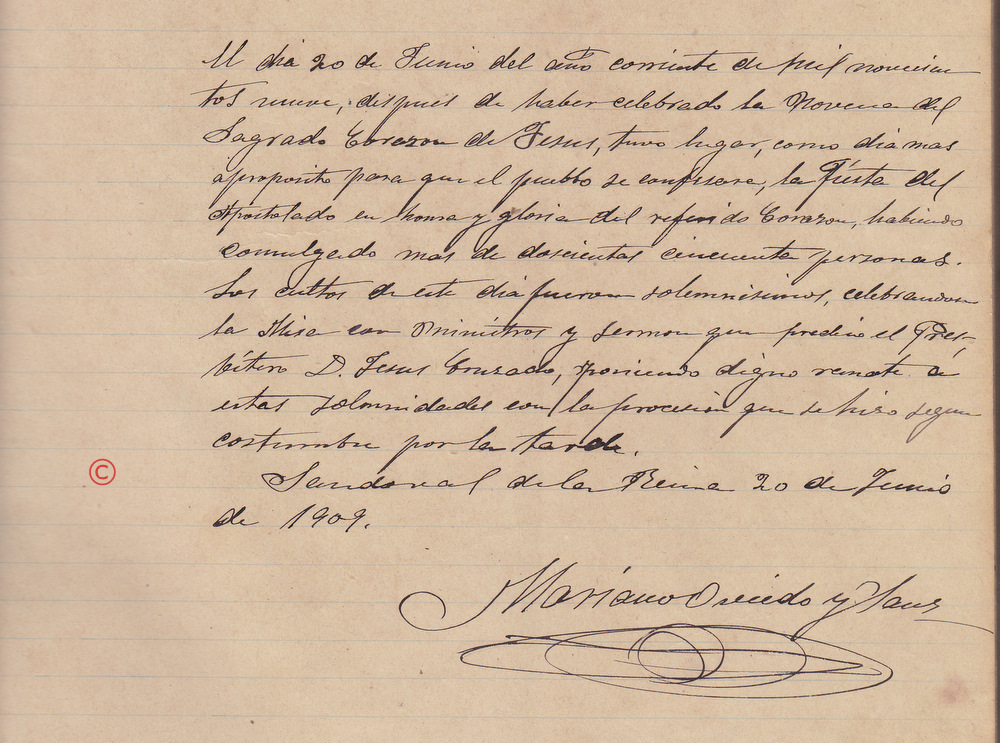 El dia 20 de Junio del año corriente de mil novecien
tos nueve, despues de haber celebrado la Novena del
Sagrado Corazon de Jesus, tuvo lugar, como dia mas
aproposito para que el pueblo se confesara, la Fiesta del
Apostolado en honra y gloria del referido Corazon, habiendo
comulgado mas de doscientas cincuenta personas.
Los cultos de este dia fueron solemnisimos, celebrandose
la Misa con Ministros y sermon que predico el Pres-
bitero D. Jesus Cruzado, poniendo digno remate a
estas solemnidades con la procesión que se hizo segun
costumbre por la tarde.
Sandoval de la Reina 20 de Junio
de 1909.
©
Mariano Oviedo y Sanz